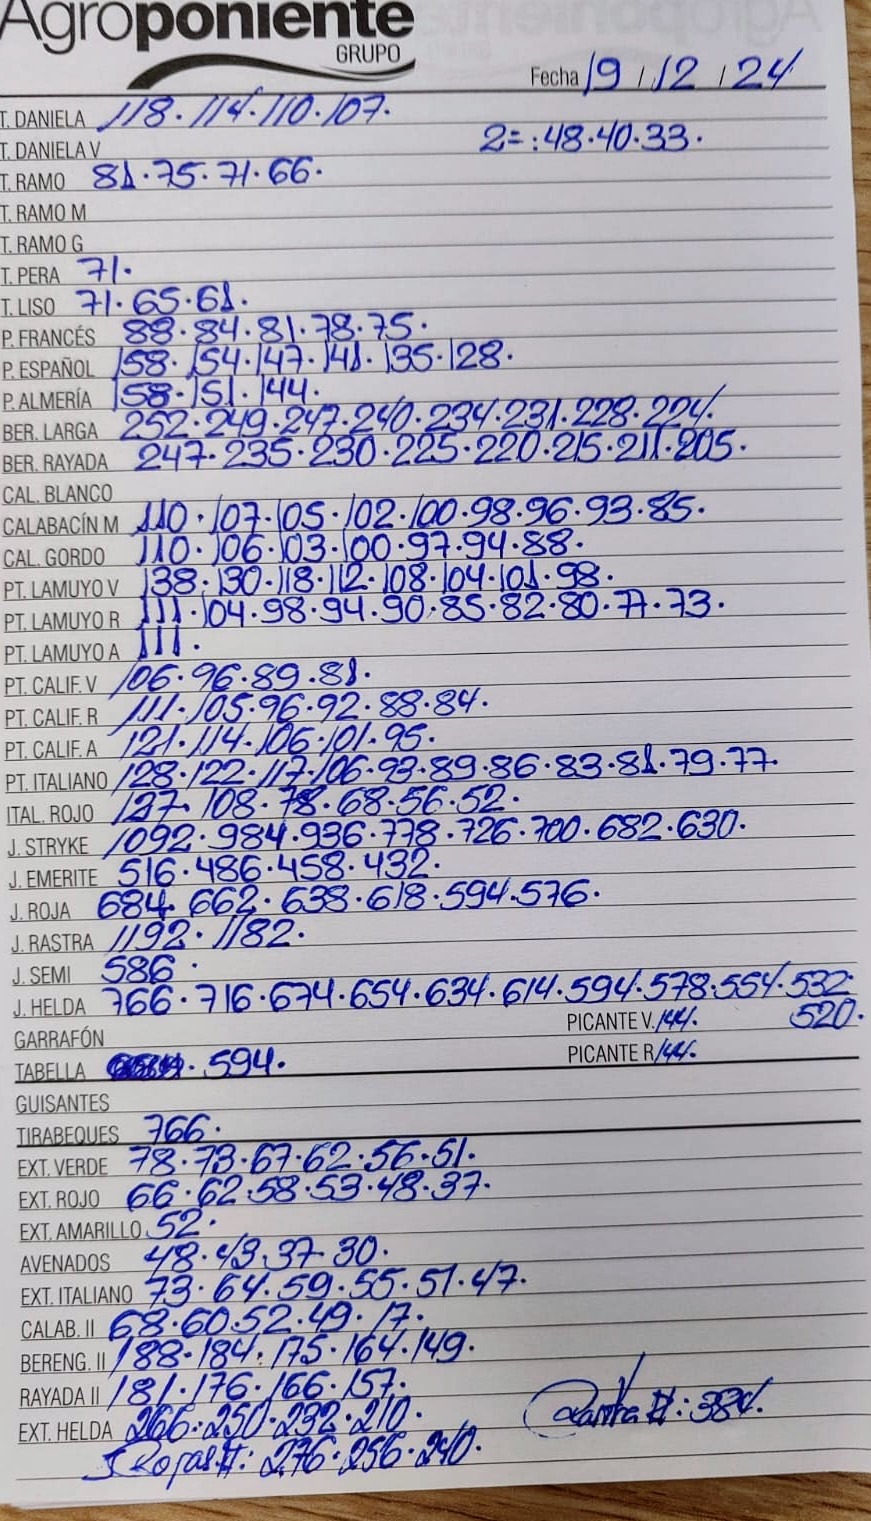 Agroponiente
GRUPO
Fecha 19 / 12 / 24
T. DANIELA 118·114·110·107·
T. DANIELA V 2=:48·40·33·
T. RAMO 81·75·71·66·
T. RAMO M
T. RAMO G
T. PERA 71·
T. LISO 71·65·61·
P. FRANCÉS 88·84·81·78·75·
P. ESPAÑOL 158·154·147·141·135·128·
P. ALMERÍA 158·151·144·
BER. LARGA 252·249·247·240·234·231·228·224·
BER. RAYADA 247·235·230·225·220·215·211·205·
CAL. BLANCO
CALABACÍN M 110·107·105·102·100·98·96·93·85·
CAL. GORDO 110·106·103·100·97·94·88·
PT. LAMUYO V 138·130·118·112·108·104·101·98·
PT. LAMUYO R 111·104·98·94·90·85·82·80·77·73·
PT. LAMUYO A 111·
PT. CALIF. V 106·96·89·81·
PT. CALIF. R 111·105·96·92·88·84·
PT. CALIF. A 121·114·106·101·95·
PT. ITALIANO 128·122·117·106·93·89·86·83·81·79·77·
ITAL. ROJO 137·108·78·68·56·52·
J. STRYKE 1092·984·936·778·726·700·682·630·
J. EMERITE 516·486·458·432·
J. ROJA 684·662·638·618·594·576·
J. RASTRA 1192·1182·
J. SEMI 586·
J. HELDA 766·716·674·654·634·614·594·578·554·532·
GARRAFÓN PICANTE V. 144· 520·
TABELLA ·594· PICANTE R 144·
GUISANTES
TIRABEQUES 766·
EXT. VERDE 78·73·67·62·56·51·
EXT. ROJO 66·62·58·53·48·37·
EXT. AMARILLO 52·
AVENADOS 48·43·37·30·
EXT. ITALIANO 73·64·59·55·51·47·
CALAB. II 68·60·52·49·17·
BERENG. II 188·184·175·164·149·
RAYADA II 181·176·166·157·
EXT. HELDA 266·250·232·210· II: 384·
J Rojas II: 276·256·240·